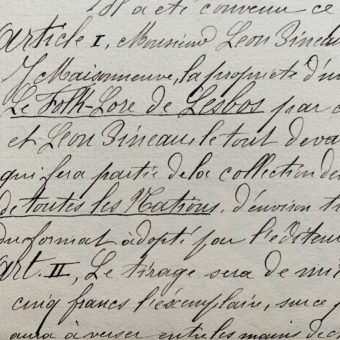 Il a été convenu ce
Article I, Monsieur Léon Pineau
J. Maisonneuve, la propriété d'u
Le Folk-Lore de Lesbos par
et Léon Pineau, le tout deva
qui fera partie de la collection de
de toutes les Nations, d'environ tr
Du format adopté par l'éditeu
Art. II, Le tirage sera de mi
cinq francs l'exemplaire, sur ce
aura à verser entre les mains de